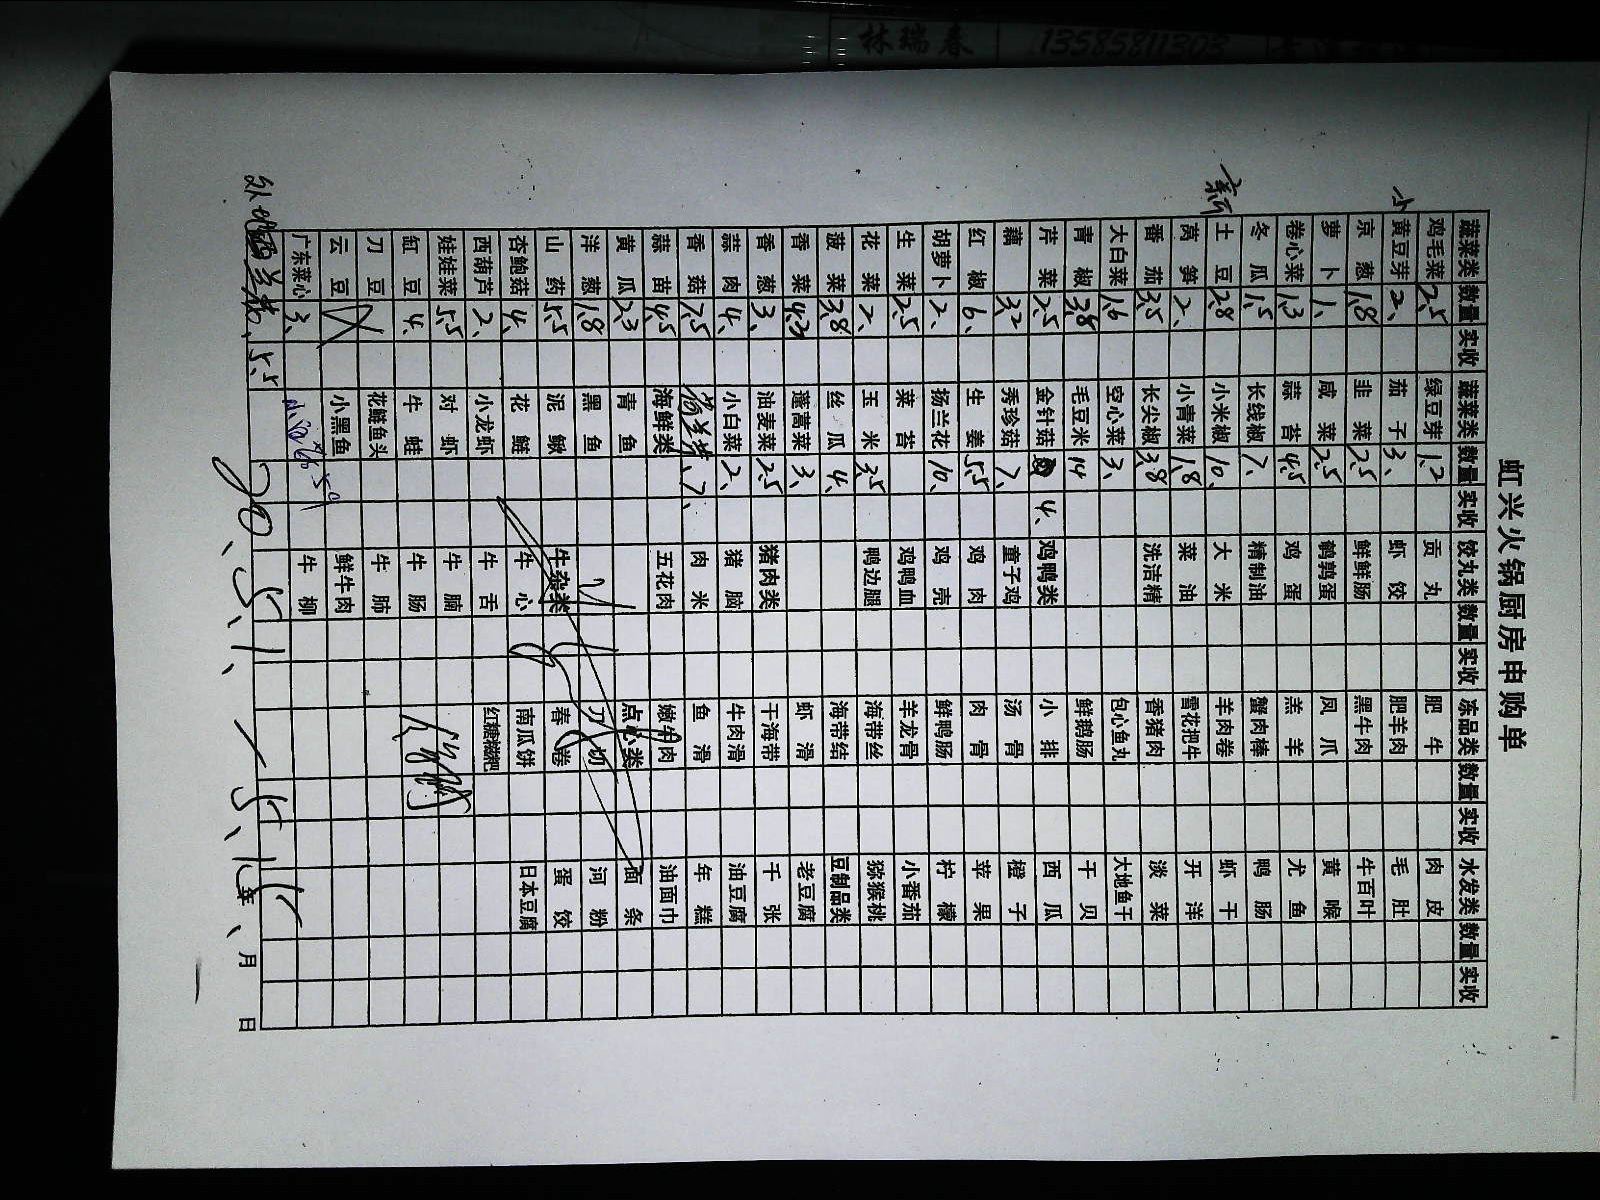 林瑞春 13585811303
虹兴火锅厨房申购单
蔬菜类 数量 实收 蔬菜类 数量 实收 饺丸类 数量 实收 冻品类 数量 实收 水发类 数量 实收
鸡毛菜 2.5 绿豆芽 1.2 贡丸 肥牛 肉皮
小黄豆芽 2、 茄子 3、 虾饺 肥羊肉 毛肚
京葱 1.8 韭菜 2.5 鲜鲜肠 黑牛肉 牛百叶
萝卜 1、 咸菜 2.5 鹌鹑蛋 凤爪 黄喉
卷心菜 1.3 蒜苔 4.5 鸡蛋 羔羊 尤鱼
冬瓜 1.5 长线椒 7、 精制油 蟹肉棒 鸭肠
新土豆 2.8 小米椒 10、 大米 羊肉卷 虾干
莴笋 2、 小青菜 1.8 菜油 雪花把牛 开洋
番茄 3.5 长尖椒 3.8 洗洁精 香猪肉 淡菜
大白菜 1.6 空心菜 3、 包心鱼丸 大地鱼干
青椒 3.8 毛豆米 14 鲜鹅肠 干贝
芹菜 2.5 金针菇 4、 鸡鸭类 小排 西瓜
藕 3.2 秀珍菇 7、 童子鸡 汤骨 橙子
红椒 6、 生姜 5.5 鸡肉 肉骨 苹果
胡萝卜 2、 扬兰花 10、 鸡壳 鲜鸭肠 柠檬
生菜 2.5 菜苔 鸡鸭血 羊龙骨 小番茄
花菜 2、 玉米 3.5 鸭边腿 海带丝 猕猴桃
菠菜 3.8 丝瓜 4、 海带结 豆制品类
香菜 4.3 蓬蒿菜 3、 虾滑 老豆腐
香葱 3、 油麦菜 2.5 猪肉类 干海带 千张
蒜肉 4、 小白菜 2、 猪脑 牛肉滑 油豆腐
香菇 7.5 7、 肉米 鱼滑 年糕
蒜苗 4.5 海鲜类 五花肉 嫩牛肉 油面巾
黄瓜 2.3 青鱼 点心类 面条
洋葱 1.8 黑鱼 刀切 河粉
山药 5.5 泥鳅 牛杂类 春卷 蛋饺
杏鲍菇 4、 花鲢 牛心 南瓜饼 日本豆腐
西葫芦 2、 小龙虾 牛舌 红糖糍粑
娃娃菜 5.5 对虾 牛腩
缸豆 4、 牛蛙 牛肠
刀豆 花鲢鱼头 牛肺
云豆 小黑鱼 鲜牛肉
广东菜心 3、 牛柳
西兰花、5.5
年 月 日